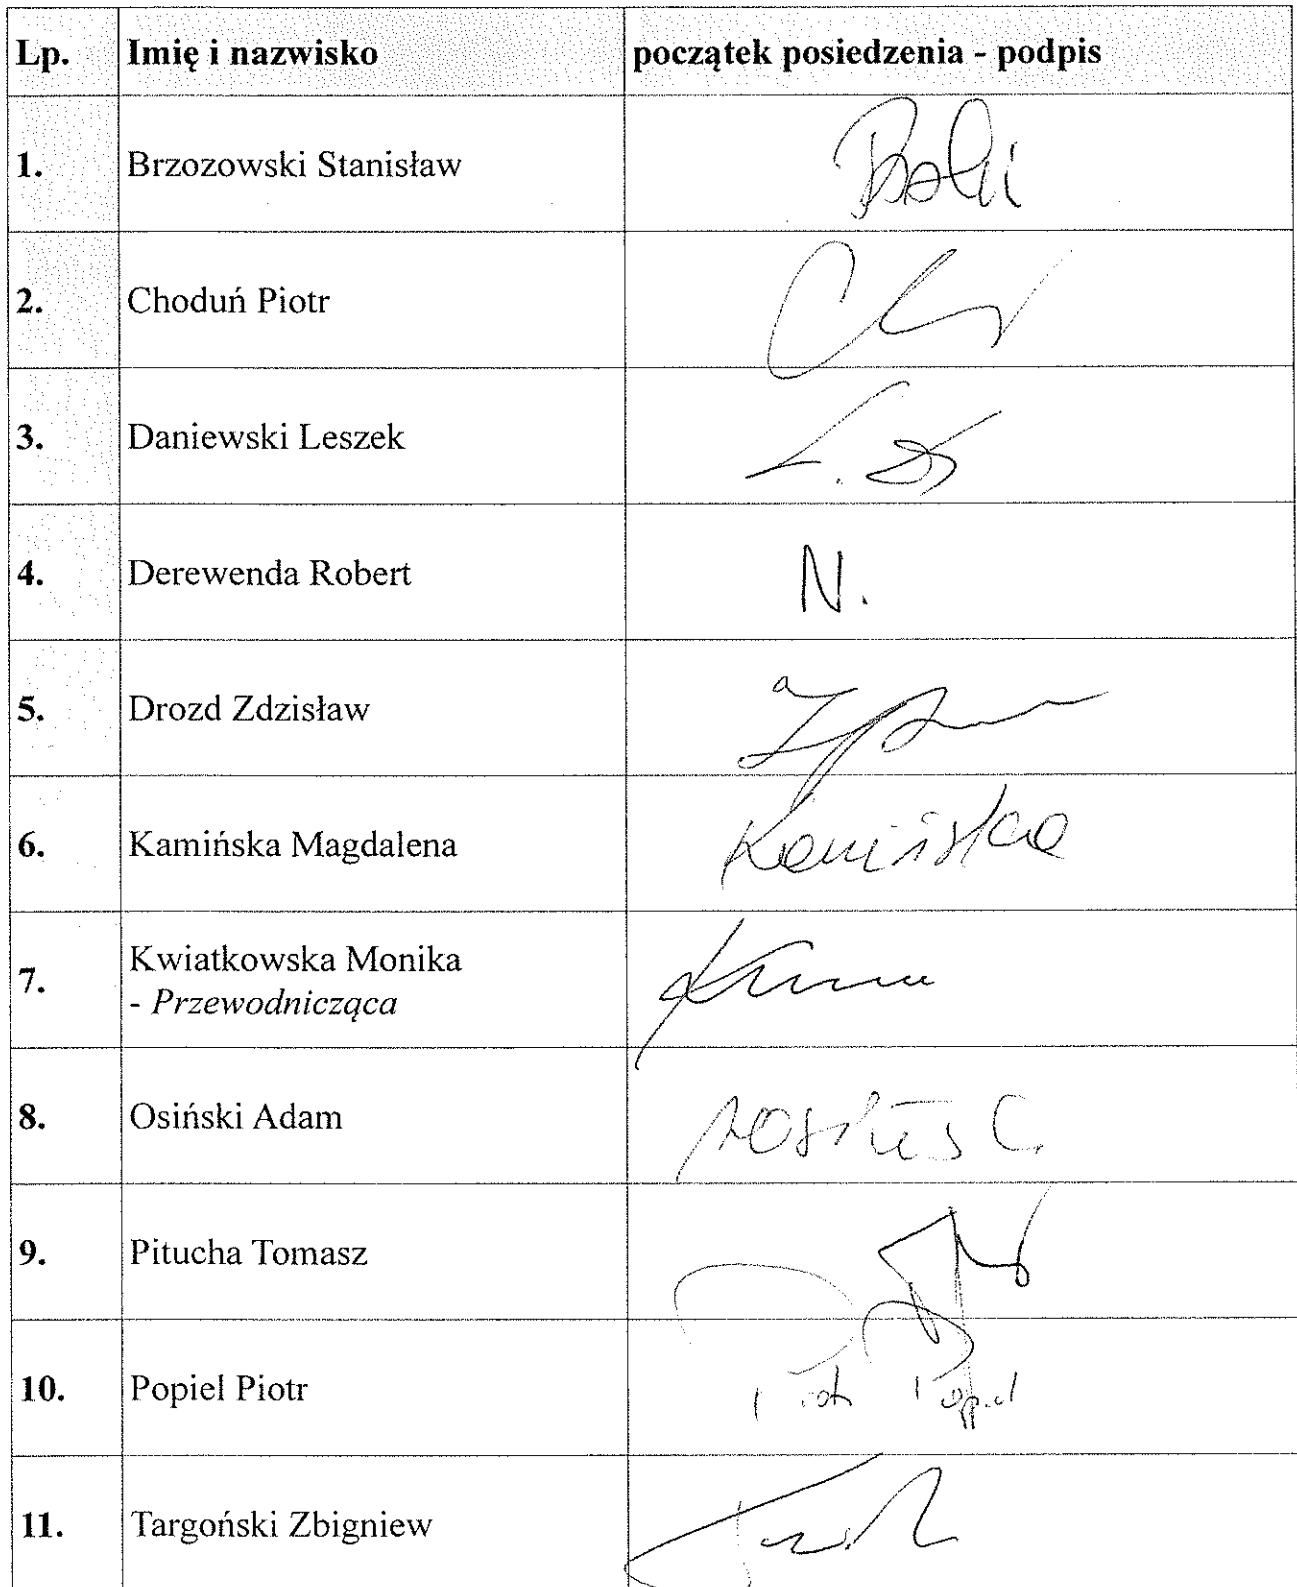 Lp. Imię i nazwisko początek posiedzenia - podpis
1. Brzozowski Stanisław
2. Choduń Piotr
3. Daniewski Leszek L. D
4. Derewenda Robert N.
5. Drozd Zdzisław
6. Kamińska Magdalena Kamińska
7. Kwiatkowska Monika
- Przewodnicząca
8. Osiński Adam
9. Pitucha Tomasz
10. Popiel Piotr Piotr Popiel
11. Targoński Zbigniew